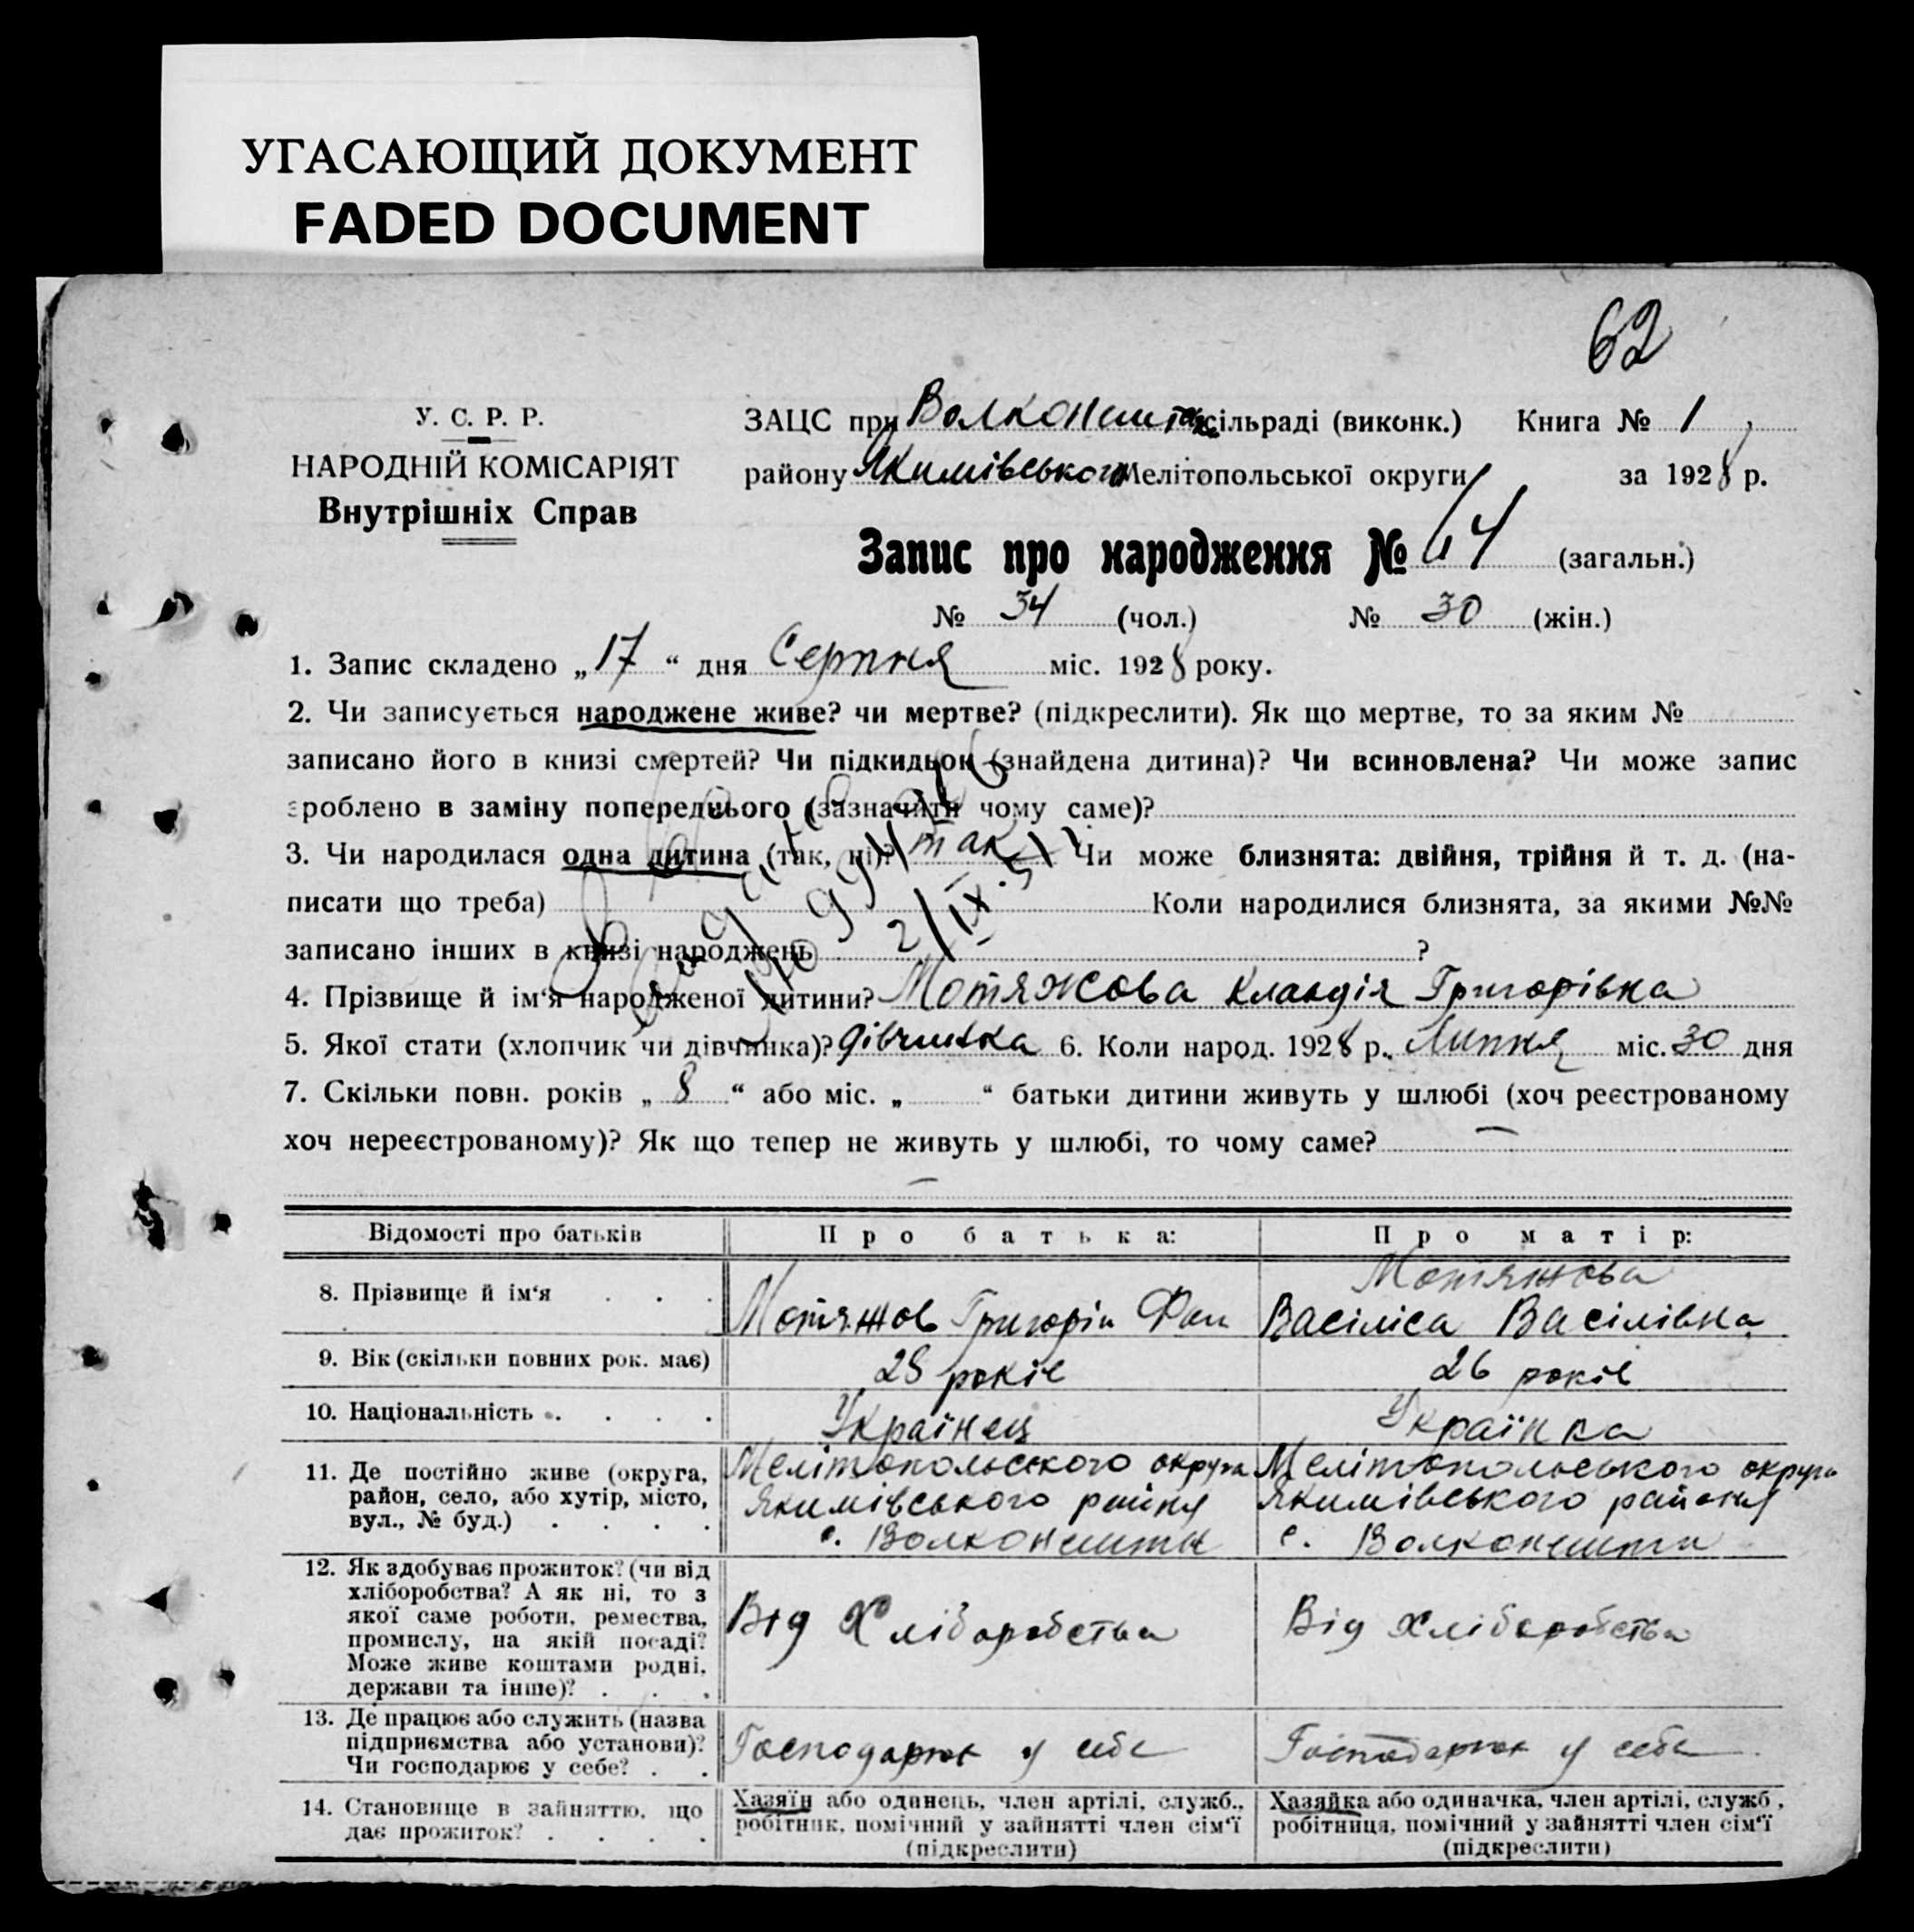 УГАСАЮЩИЙ ДОКУМЕНТ
FADED DOCUMENT
62
У. С. Р. Р.
НАРОДНІЙ КОМІСАРІЯТ
Внутрішніх Справ
ЗАЦС при Волконешт сільраді (виконк.) Книга № 1
району Якимівського Мелітопольської округи за 1928 р.
Запис про народження № 64 (загальн.)
№ 34 (чол.) № 30 (жін.)
1. Запис складено „17“ дня Серпня міс. 1928 року.
2. Чи записується народжене живе? чи мертве? (підкреслити). Як що мертве, то за яким №
записано його в книзі смертей? Чи підкидьок (знайдена дитина)? Чи всиновлена? Чи може запис
зроблено в заміну попереднього (зазначити чому саме)?
3. Чи народилася одна дитина (так, ні)? так Чи може близнята: двійня, трійня й т. д. (на-
писати що треба) Коли народилися близнята, за якими №№
записано інших в книзі народжень ?
2/IX-51
4. Прізвище й ім‘я народженої дитини? Мотяжова Клавдія Григорівна
5. Якої стати (хлопчик чи дівчинка)? дівчинка 6. Коли народ. 1928 р. Липня міс. 30 дня
7. Скільки повн. років „8“ або міс. „ “ батьки дитини живуть у шлюбі (хоч реєстрованому
хоч нереєстрованому)? Як що тепер не живуть у шлюбі, то чому саме? —
—
Відомості про батьків Про батька: Про матір:
8. Прізвище й ім‘я Мотяжов Григорій Мотяжова
Васіліса Васілівна
9. Вік (скільки повних рок. має) 28 років 26 років
10. Національність Українец Українка
11. Де постійно живе (округа, Мелітопольського округа Мелітопольського округа
район, село, або хутір, місто, Якимівського района Якимівського района
вул., № буд.) с. Волконешти с. Волконешти
12. Як здобуває прожиток? (чи від
хліборобства? А як ні, то з
якої саме роботи, ремества, Від Хліборобства Від Хліборобства
промислу, на якій посаді?
Може живе коштами родні,
держави та інше)?
13. Де працює або служить (назва
підприємства або установи)? Господарює у себе Господарює у себе
Чи господарює у себе?
14. Становище в зайняттю, що Хазяїн або одинець, член артілі, служб., Хазяйка або одиначка, член артілі, служб.,
дає прожиток? робітник, помічний у зайнятті член сім‘ї робітниця, помічний у зайнятті член сім‘ї
(підкреслити) (підкреслити)